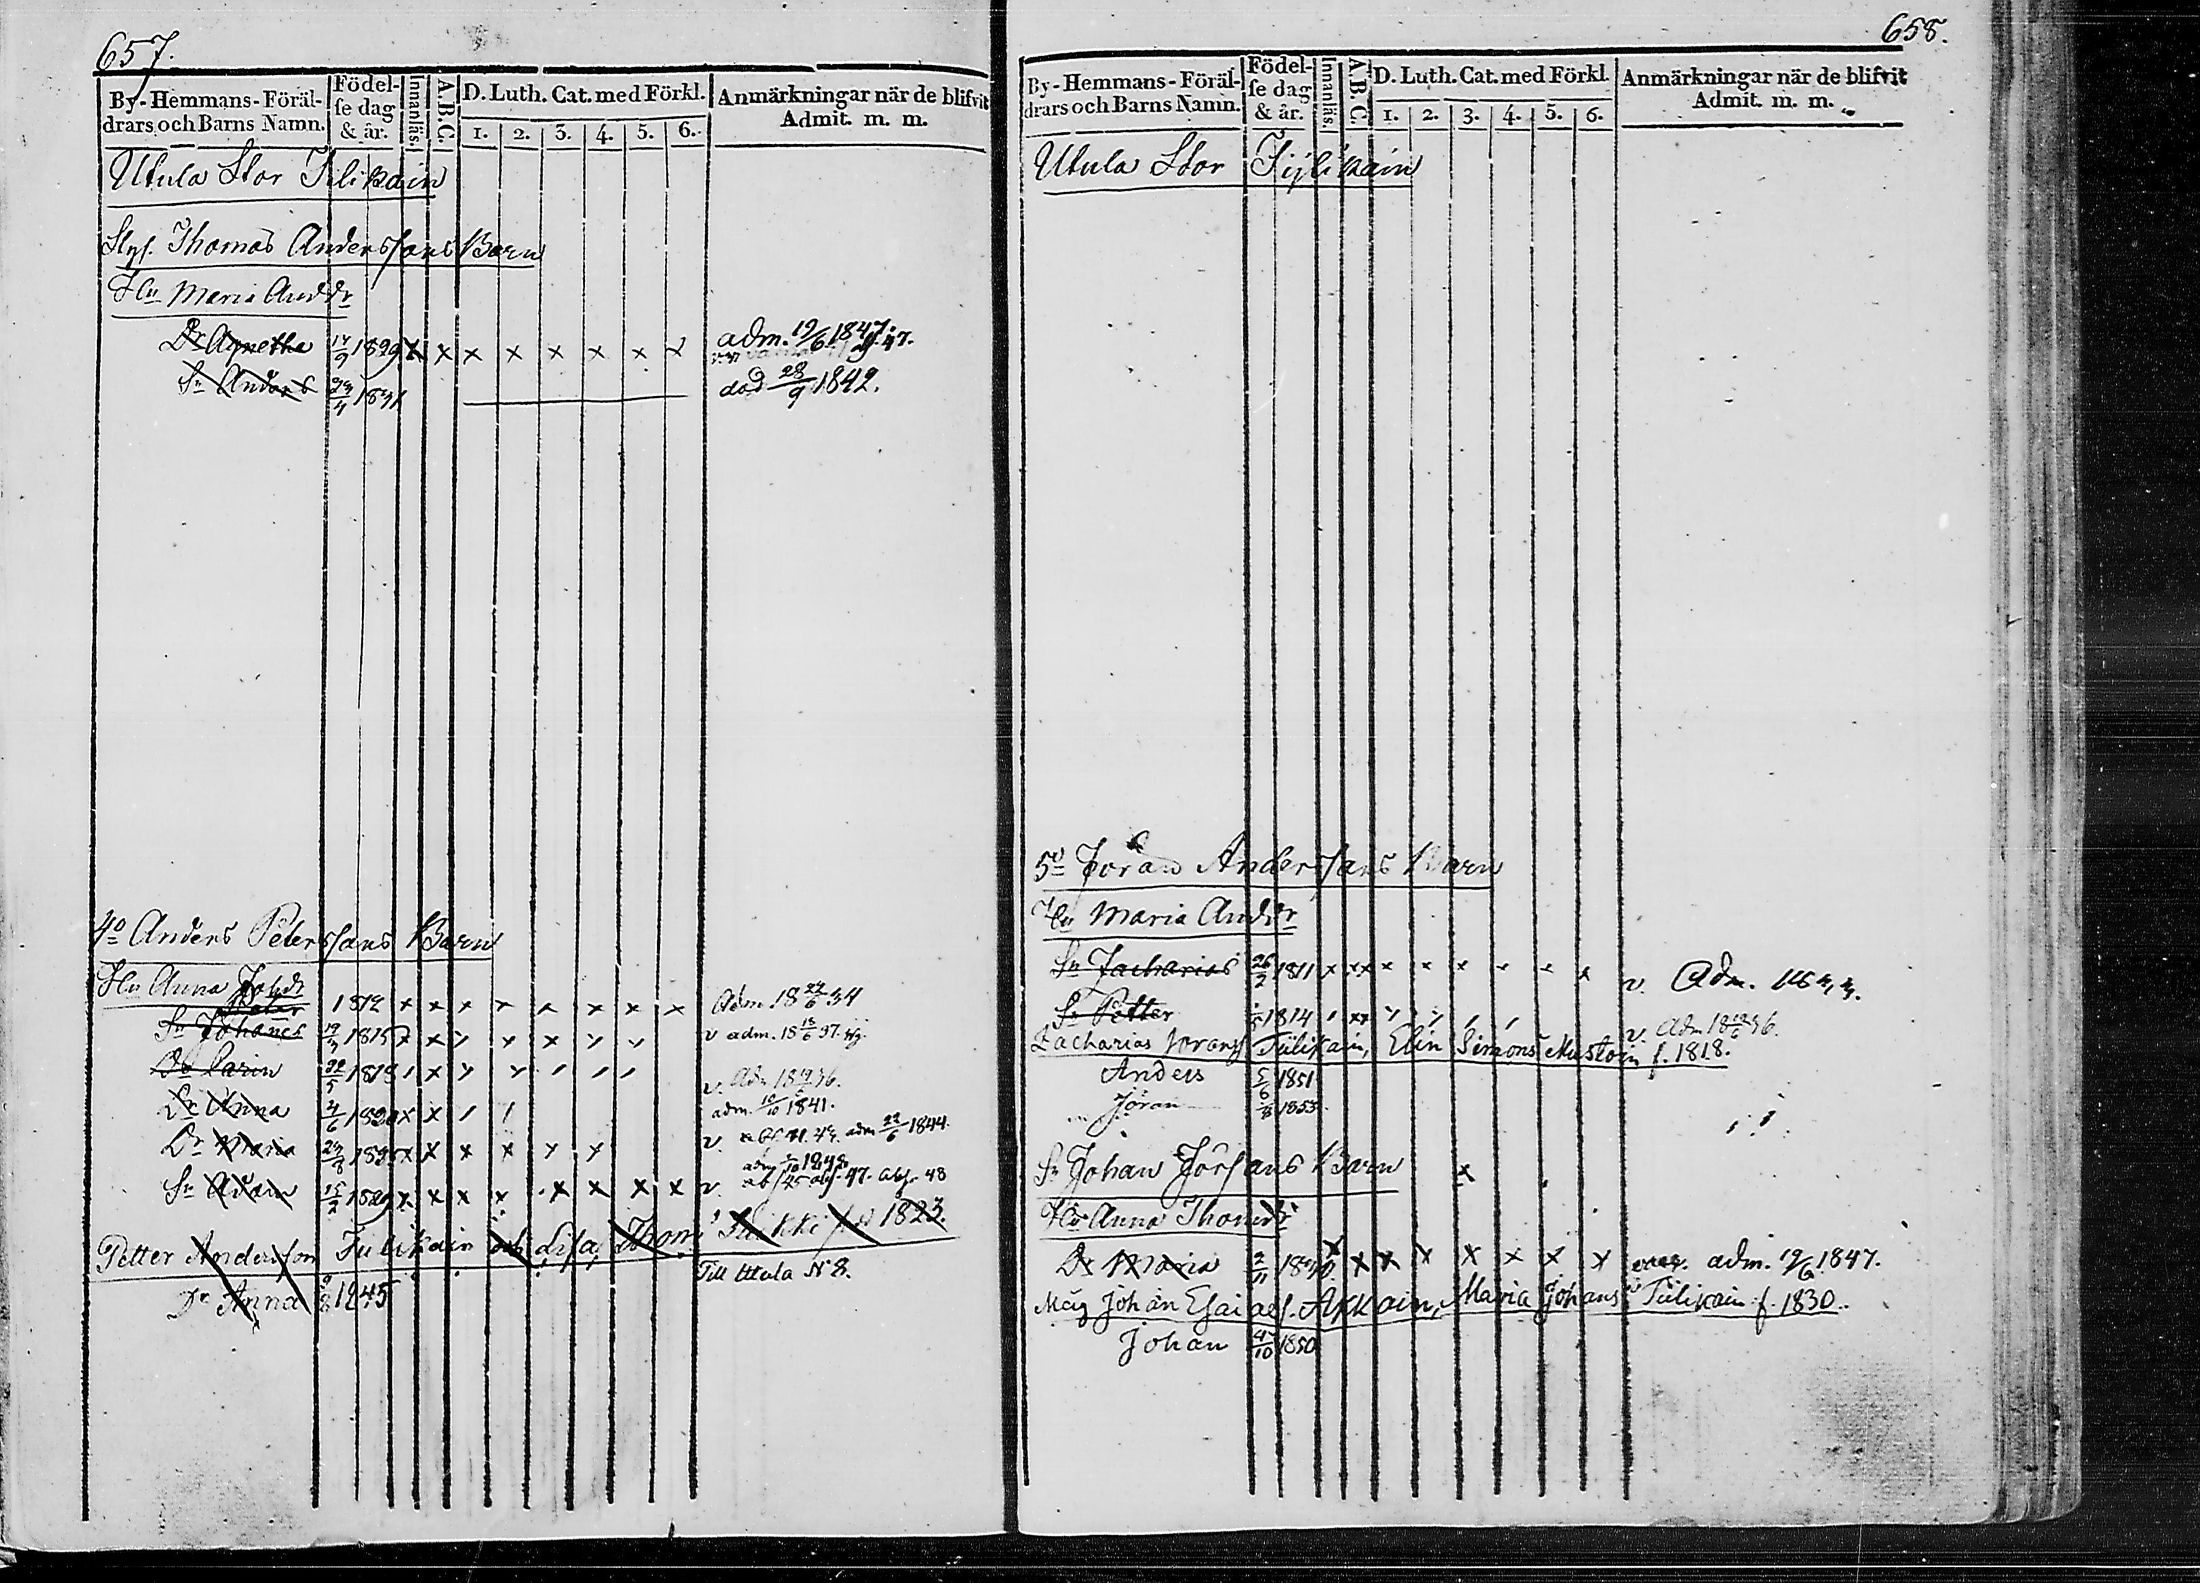 657.
By-Hemmans-Föräl-
drars och Barns Namn.
Födel-
se dag
& år.
Innanläs.
A.B.C.
D. Luth. Cat. med Förkl.
1. 2. 3. 4. 5. 6.
Anmärkningar när de blifvit
Admit. m. m.
Utula Stor Tilikain
Thomas Anderssons Barn
Hu Maria Andsdr
Dr Agnetha 14/9 1829 x x x x x x x adm. 19/6 1847.
Sn Anders 23/4 1831 död 28/9 1842.
4o Anders Peterssons Barn
Hu Anna Johdr
Peter 1812 x x x x x x x x Adm. 18 24/6 34
Sn Johanes 19/3 1815 x x x x x v adm. 18 18/6 37.
Dr Carin 1818 x v. Adm 18 36.
Dr Anna 4/6 1820 x x adm. 10/10 1841.
Dr Maria 24/8 1825 x x x x x x v. adm 22/6 1844.
Sn Adam 15/2 1829 x x x x x x x x v. abs. 47. abs. 48
Petter Andersson Tulikain och Lisa Thoms Sikki född 1823.
Dr Anna 9/8 1845 Till Utula N 8.
658.
By-Hemmans-Föräl-
drars och Barns Namn.
Födel-
se dag
& år.
Innanläs.
A.B.C.
D. Luth. Cat. med Förkl.
1. 2. 3. 4. 5. 6.
Anmärkningar när de blifvit
Admit. m. m.
Utula Stor Tijlikain
5o Jöran Anderssons Barn
Hu Maria Andsdr
Sn Zacharias 26/2 1811 x x x x x x x v. Adm.
Sn Petter 1814 v. Adm 18 36.
Zacharias Jörans Tiilikain, Elin Simons Mustoin f. 1818.
Anders 5/6 1851
Jöran 1853
Sn Johan Jörsans Barn x
Hu Anna Thomdr
Dr Maria 2/11 x x x x x x x x adm. 19/6 1847.
Måg Johan Esaiaes. Akkain, Maria Johans Tiilikain f. 1830.
Johan 1850